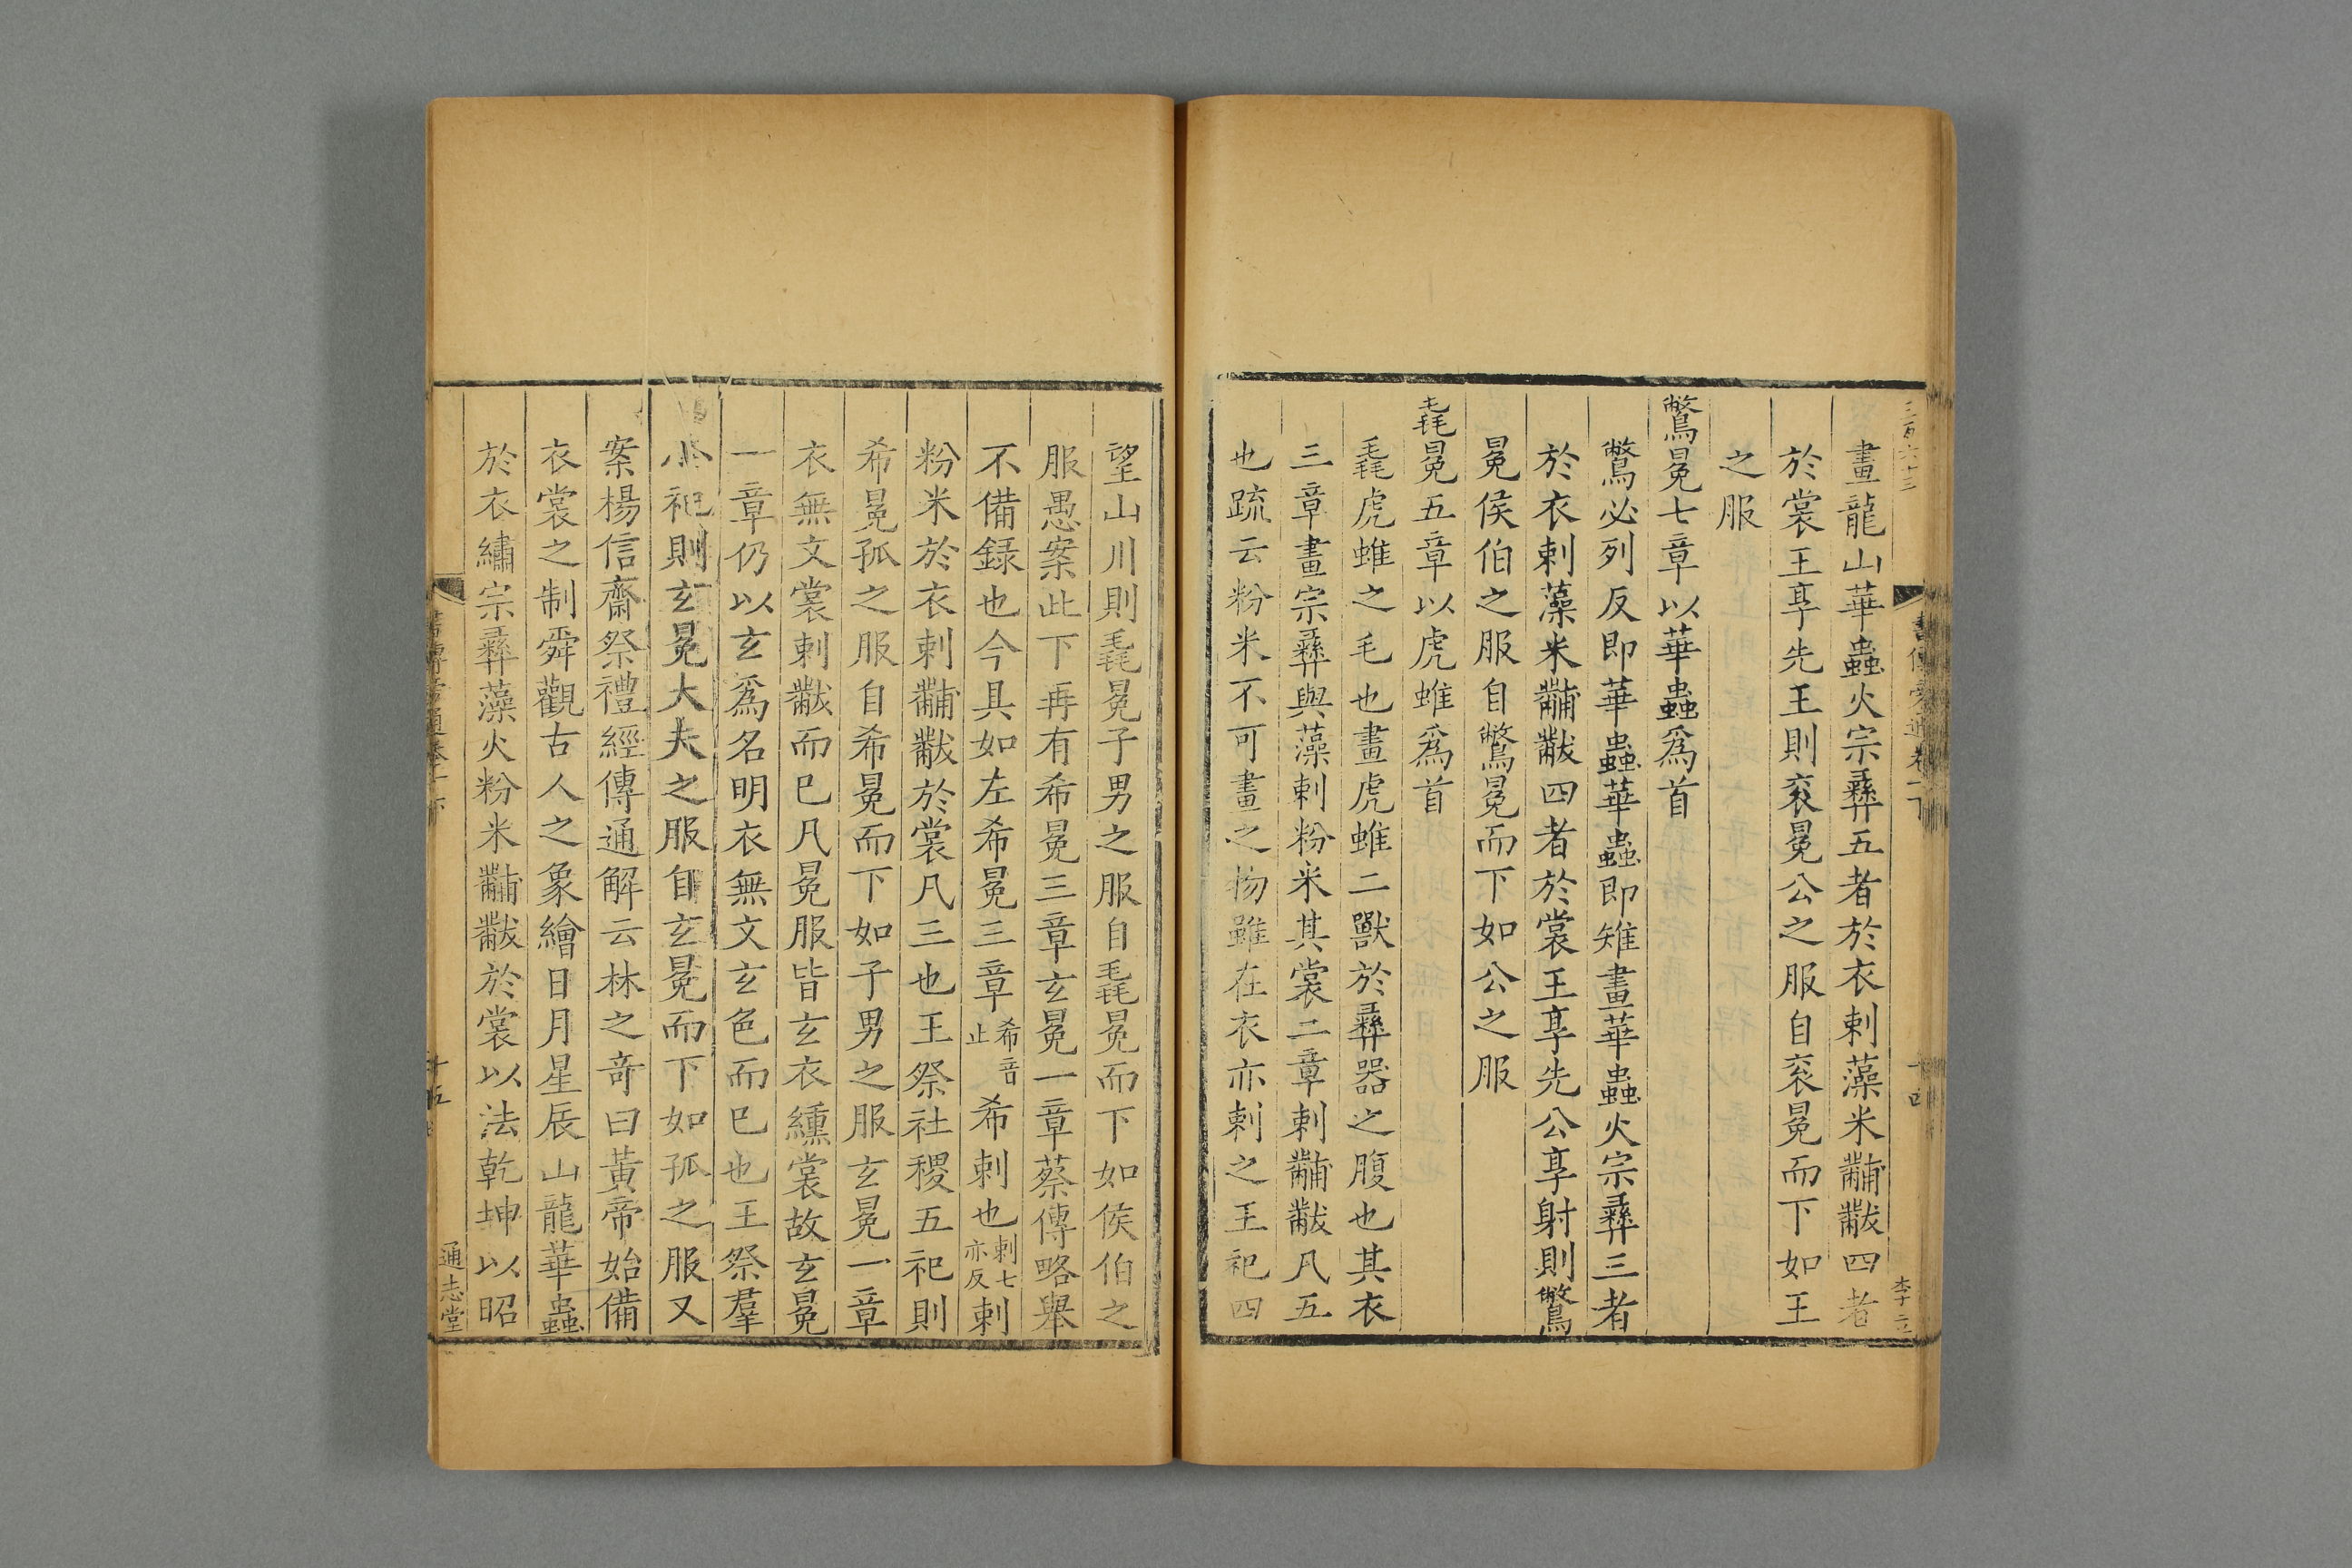 三百六十三
書傳旁通卷一下
十四
李立
畫龍山華蟲火宗彝五者於衣刺藻米黼黻四者
於裳王享先王則衮冕公之服自衮冕而下如王
之服
鷩冕七章以華蟲爲首
鷩必列反即華蟲華蟲即雉畫華蟲火宗彝三者
於衣刺藻米黼黻四者於裳王享先公享射則鷩
冕侯伯之服自鷩冕而下如公之服
毳冕五章以虎蜼爲首
毳虎蜼之毛也畫虎蜼二獸於彝器之腹也其衣
三章畫宗彝與藻刺粉米其裳二章刺黼黻凡五
也疏云粉米不可畫之物雖在衣亦刺之王祀四
望山川則毳冕子男之服自毳冕而下如侯伯之
服愚案此下再有希冕三章玄冕一章蔡傳略舉
不備録也今具如左希冕三章希音止希刺也刺七亦反刺
粉米於衣刺黼黻於裳凡三也王祭社稷五祀則
希冕孤之服自希冕而下如子男之服玄冕一章
衣無文裳刺黻而已凡冕服皆玄衣纁裳故玄冕
一章仍以玄爲名明衣無文玄色而已也王祭羣
小祀則玄冕大夫之服自玄冕而下如孤之服又
案楊信齋祭禮經傳通解云林之奇曰黃帝始備
衣裳之制舜觀古人之象繪日月星辰山龍華蟲
於衣繡宗彝藻火粉米黼黻於裳以法乾坤以昭
書傳旁通卷一下
十五
通志堂